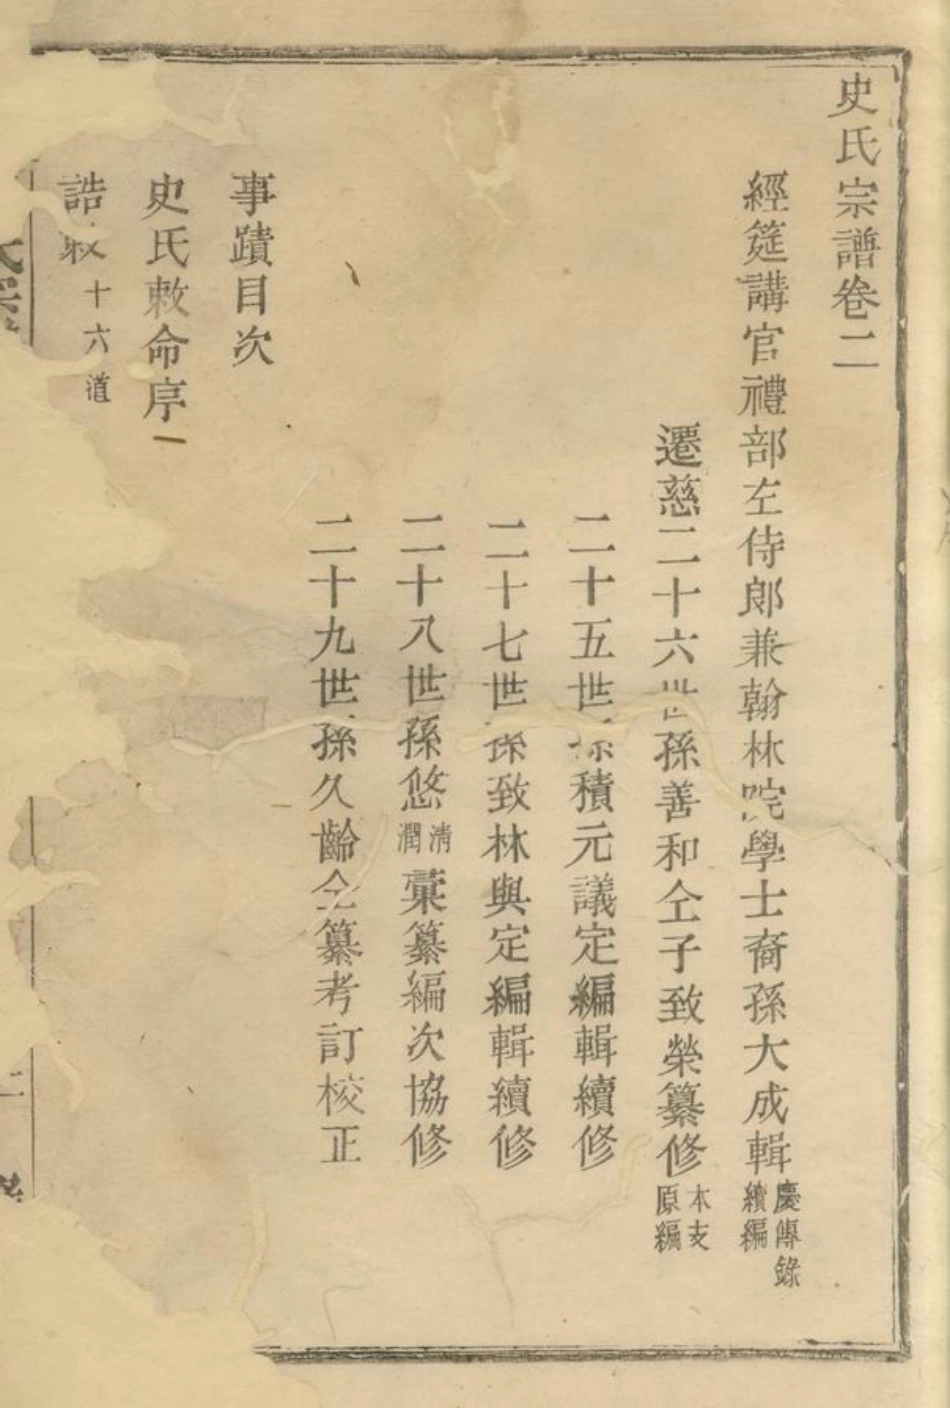 史氏宗譜卷二
經筵講官禮部左侍郎兼翰林院學士裔孫大成輯慶傳錄續編
遷慈二十六世孫善和仝子致榮纂修本支原編
二十五世孫積元議定編輯續修
二十七世孫致林與定編輯續修
二十八世孫悠清潤彙纂編次協修
二十九世孫久齡仝纂考訂校正
事蹟目次
史氏敕命序一
誥敕十六道
二